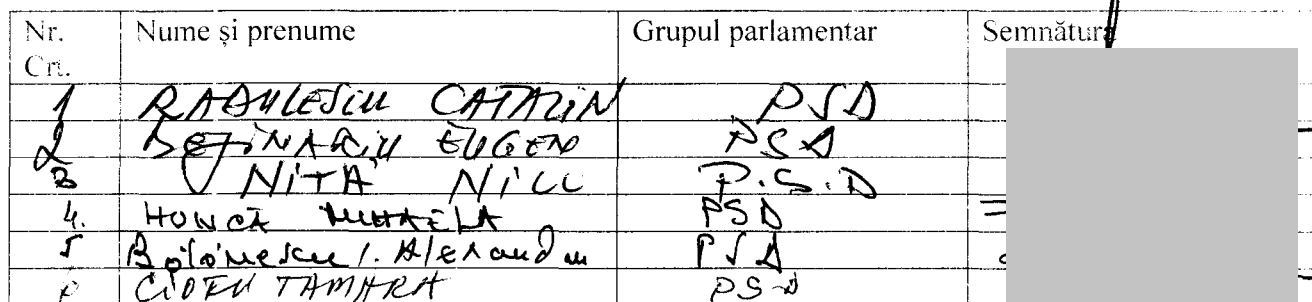 Nr. Crt. Nume și prenume Grupul parlamentar Semnătura
1 RADULESCU CATALIN PSD
2 BEJINARIU EUGEN PSD
3 NIȚĂ NICU P.S.D
4. HUNCĂ MIHAELA PSD
5 Alexandru PSD
6 CIOFU TAMARA PSD